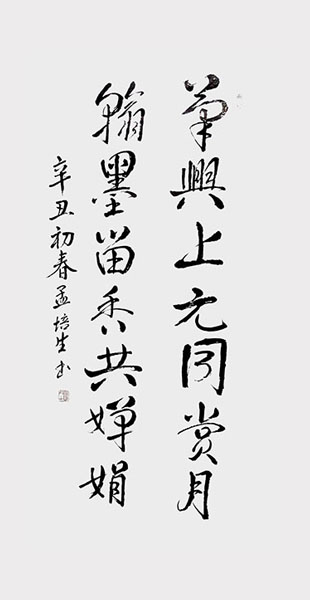 筆興上元同赏月
翰墨留香共婵娟
辛丑初春孟培生书